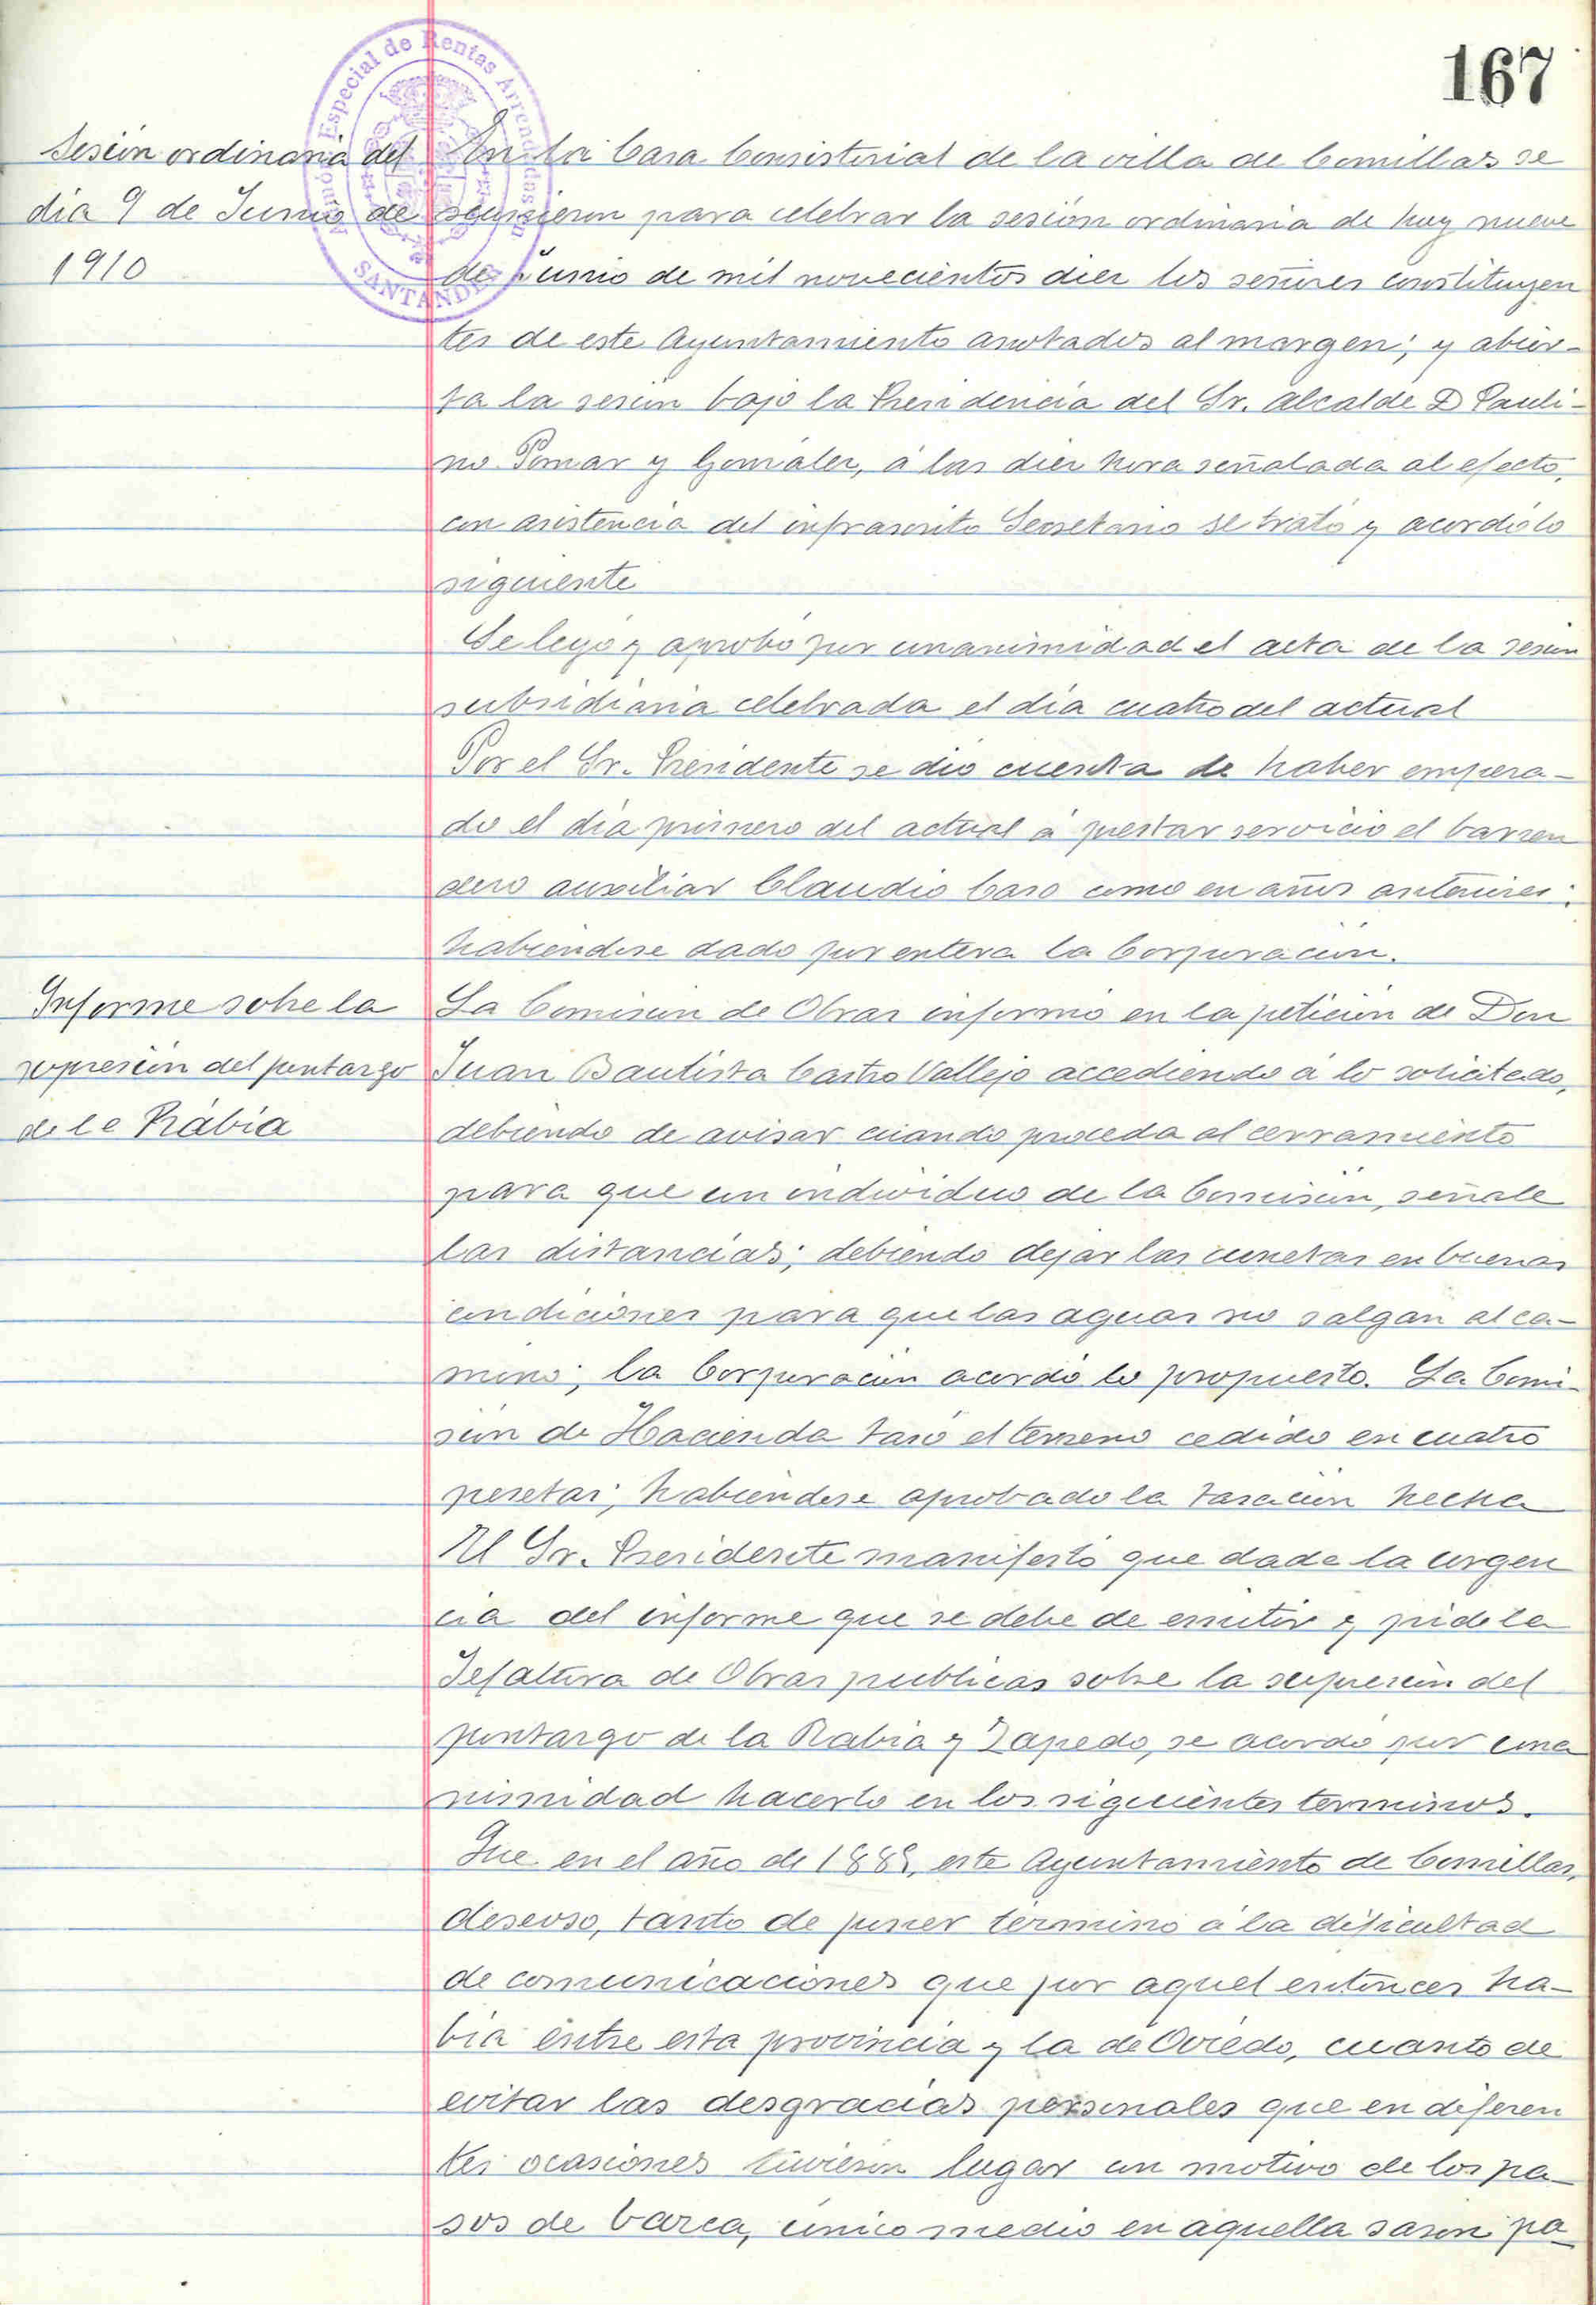 167
Administración Especial de Rentas Arrendadas en
SANTANDER
Sesión ordinaria del
día 9 de Junio de
1910
En la Casa Consistorial de la villa de Comillas se
reunieron para celebrar la sesión ordinaria de hoy nueve
de Junio de mil novecientos diez los señores constituyen
tes de este Ayuntamiento anotados al margen; y abier-
ta la sesión bajo la Presidencia del Sr. Alcalde D Pauli-
no Pomar y González, á las diez hora señalada al efecto,
con asistencia del infrascrito Secretario se trató y acordó lo
siguiente
Se leyó y aprobó por unanimidad el acta de la sesión
subsidiaria celebrada el día cuatro del actual
Por el Sr. Presidente se dió cuenta de haber empeza-
do el día primero del actual á prestar servicio el barren
dero auxiliar Claudio Caso como en años anteriores:
habiéndose dado por entera la Corporación.
Informe sobre la
supresión del pontazgo
de la Rábia
La Comisión de Obras informó en la petición de Don
Juan Bautista Castro Vallejo accediendo á lo solicitado,
debiendo de avisar cuando proceda al cerramiento
para que un individuo de la Comisión, señale
las distancias; debiendo dejar las cunetas en buenas
condiciones para que las aguas no salgan al ca-
mino; la Corporación acordó lo propuesto. La Comi-
sión de Hacienda tasó el terreno cedido en cuatro
pesetas; habiéndose aprobado la tasación hecha
El Sr. Presidente manifestó que dada la urgen
cia del informe que se debe de emitir y pide la
Jefatura de Obras publicas sobre la supresión del
pontazgo de la Rabia y Zapedo, se acordó por una
nimidad hacerlo en los siguientes terminos.
Que en el año de 1889, este Ayuntamiento de Comillas,
deseoso, tanto de poner término á la dificultad
de comunicaciones que por aquel entónces ha-
bía entre esta provincia y la de Oviedo, cuanto de
evitar las desgracias personales que en diferen
tes ocasiones tuvieron lugar con motivo de los pa-
sos de barca, único medio en aquella sazon pa-